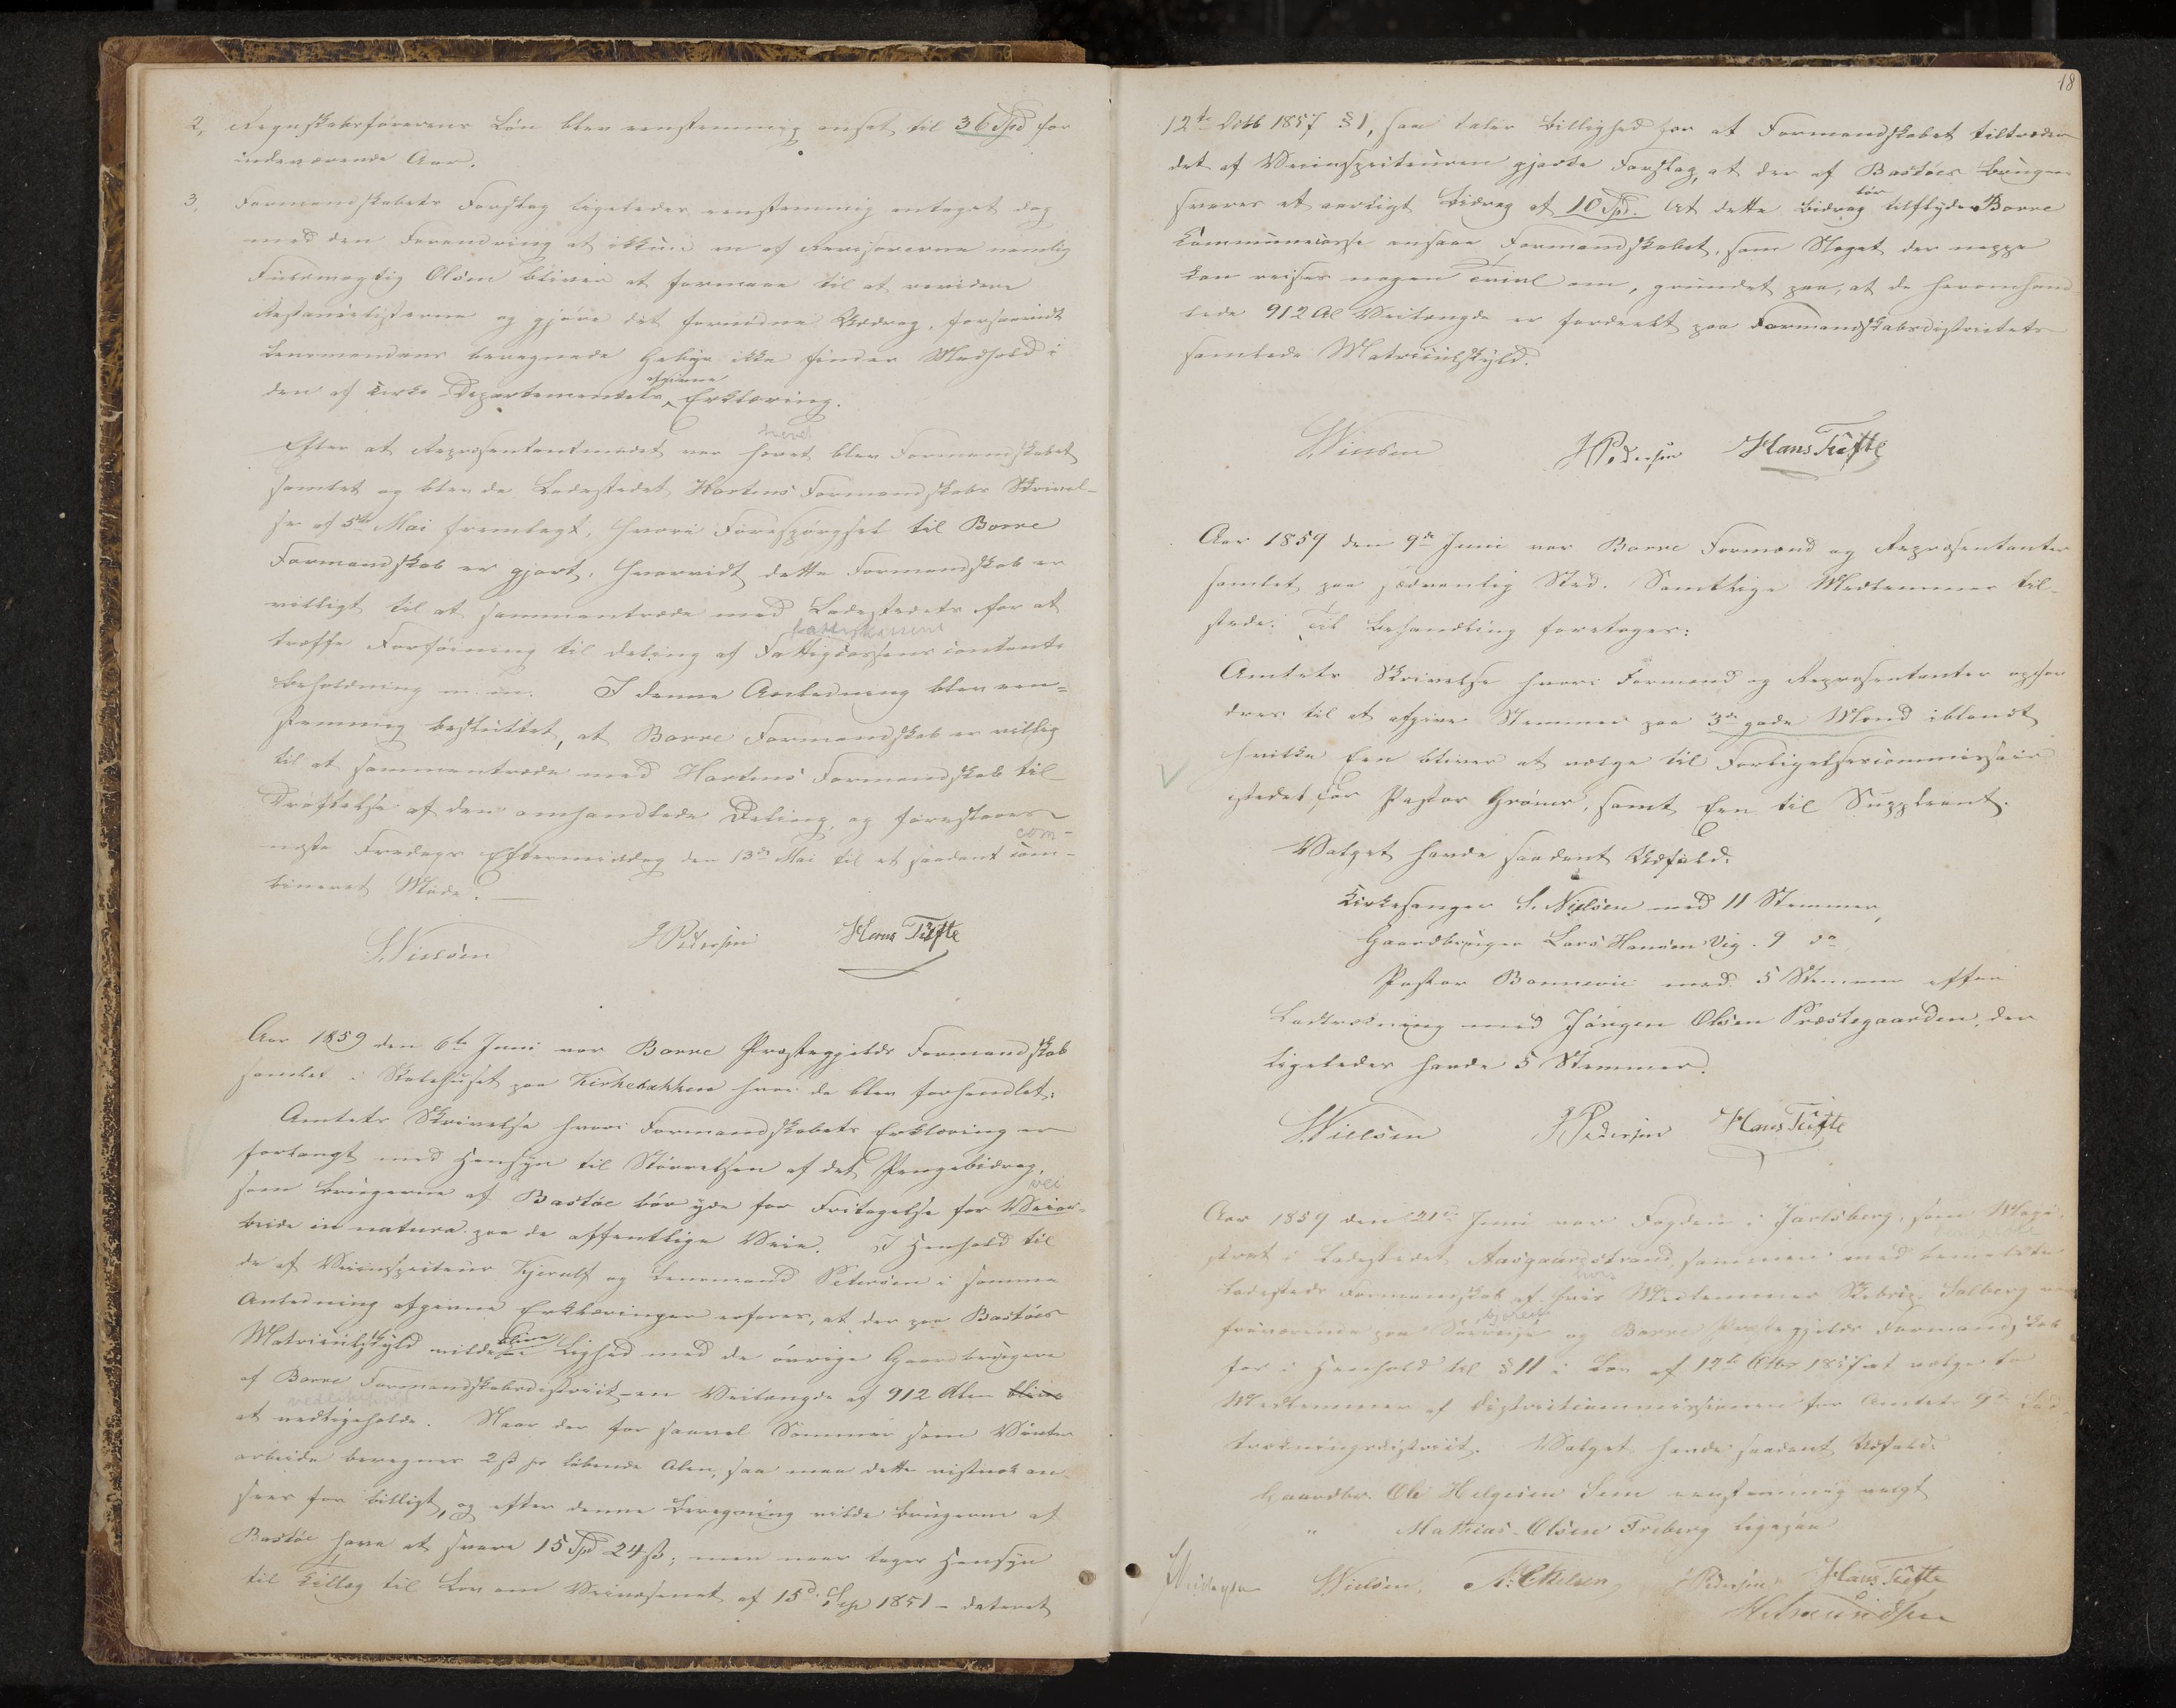 2, Regnskabsførerens Løn blev eenstemmig ansat til 36 Spd for
indeværende Aar.
3. Formandskabets Forslag ligeledes eenstemmig antaget dog
med den Forandring at ikkun en af Revisorerne nemlig
Fuldmægtig Olsen bliver at formaae til at revidere
Restancelisterne og gjøre det fornødne Uddrag, forsaavidt
Lensmandens beregnede Gebyr ikke finder Medhold i
den af Kirke Departementets afgivne Erklæring.
Efter at Repræsentantmødet var hævet blev Formandskabet
hævet
samlet og blev da Ladestedet Hortens Formandskabs Skrivel-
se af 5te Mai fremlagt, hvori Forespørgsel til Borre
Formandskab er gjort, hvorvidt dette Formandskab er
villigt til at sammentræde med Ladestedets for at
træffe Forføining til Deling af Fattigcassens contante
Beholdning m. m. I denne Anledning blev een-
stemmig besluttet, at Borre Formandskab er villig
til at sammentræde med Hortens Formandskab til
Drøftelse af den omhandlede Deling, og foreslaaes
com-
næste Fredags Eftermiddag den 13de Mai til et saadant com-
bineret Møde. —
S. Nielsen HPedersen Hans Tufte
Aar 1859 den 6te Juni var Borre Præstegjelds Formandskab
samlet i Skolehuset paa Kirkebakken hvor da blev forhandlet:
Amtets Skrivelse hvori Formandskabets Erklæring er
forlangt med Hensyn til Størrelsen af det Pengebidrag,
vei
som Brugerne af Bastøe bør yde for Fritagelse for Veiar-
beide in natura paa de offentlige Veie. I Henhold til
de af Veiinspecteur Kjerulf og Lensmand Petersen i samme
Anledning afgivne Erklæringer erfares, at der paa Bastøes
Matriculskyld vilde blive i Lighed med de øvrige Gaardbrugere
af Borre Formandskabsdistrict en Veilængde af 912 Alen blive
at vedligeholde. Naar der for saavel Sommer som Vinter
arbeide beregnes 2 ß pr løbende Alen, saa maa dette vistnok an-
sees for billigt, og efter denne Beregning vilde Brugerne af
Bastøe have at svare 15 Spd 24 ß; men naar tages Hensyn
til Tillæg til Lov om Veivæsenet af 15de Sep 1851 - dateret
18
12te Octb 1857 §1, saa taler Billighed for at Formandskabet tiltræder
det af Veiinspecteuren gjorte Forslag, at der af Bastøes Brugere
svares et aarligt Bidrag af 10 Spd. At dette Bidrag bør tilflyde Borre
Communecasse ansaae Formandskabet, som Noget der neppe
kan reises nogen Tvivl om, grundet paa, at de heromhand-
lede 912 Al Veilængde er fordeelt paa Formandskabsdistrictets
samlede Matriculskyld.
S. Nielsen HPedersen Hans Tufte
Aar 1859 den 9de Juni var Borre Formænd og Repræsentanter
samlet paa sædvanlig Sted. Samtlige Medlemmer til-
stede. Til Behandling foretoges:
Amtets Skrivelse hvori Formænd og Repræsentanter opfor
dres til at afgive Stemmer paa 3de gode Mænd iblandt
hvilke Een bliver at vælge til Forligelsescommissair
istedet for Pastor Grøner, samt Een til Suppleant.
Valget havde saadant Udfald:
Kirkesanger S. Nielsen med 11 Stemmer,
Gaardbruger Lars Hansen Vig. 9 do
Pastor Bonnevie med 5 Stemmer efter
Lodtrækning med Jørgen Olsen Præstegaarden, der
ligeledes havde 5 Stemmer.
S. Nielsen HPedersen Hans Tufte
Aar 1859 den 21de Juni var Fogden i Jarlsberg, som Magi-
strat i Ladestedet Aasgaardstrand, sammen med bemeldte
Ladesteds Formandskab af hvis Medlemmer Skibsr. Solberg var
fraværende paa Søereise og Borre Præstegjelds Formandskab
for i Henhold til §11 i Lov af 12te Octbr 1857 at vælge to
Medlemmer af Districtscommissionen for Amtets 9de Lod-
trækningsdistrict. Valget havde saadant Udfald:
Gaardbr. Ole Helgesen Sem eenstemmig valgt
" Mathias Olsen Freberg ligesaa
S. Nielsen, HPedersen Hans Tufte